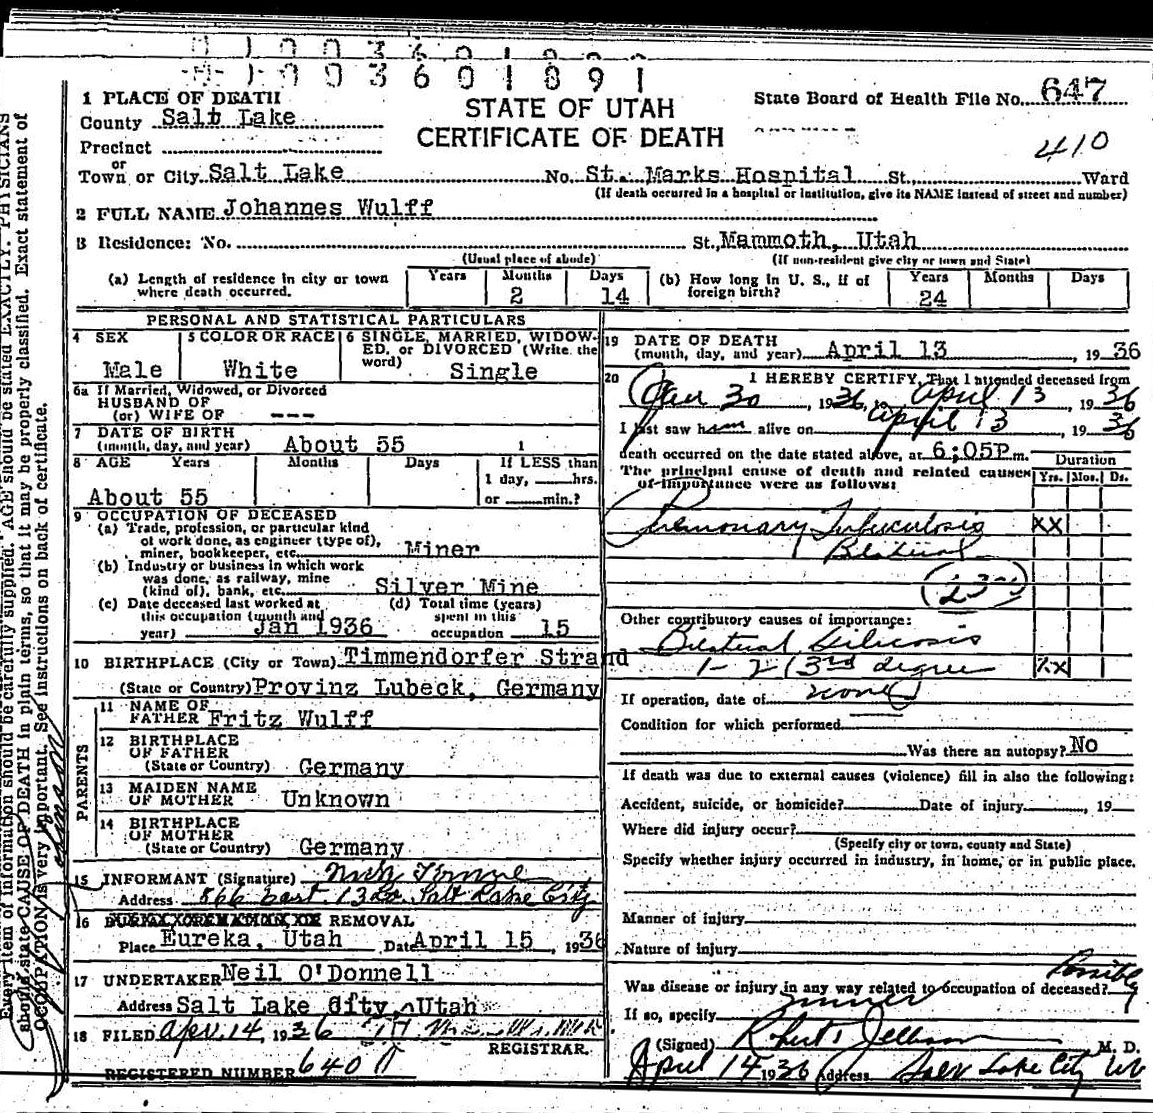 1003601891
1 PLACE OF DEATH
STATE OF UTAH
CERTIFICATE OF DEATH
State Board of Health File No. 647
410
County Salt Lake
Precinct
or
Town or City Salt Lake No. St. Marks Hospital St. Ward
(If death occurred in a hospital or institution, give its NAME instead of street and number)
2 FULL NAME Johannes Wulff
3 Residence: No. St., Mammoth, Utah
(Usual place of abode) (If non-resident give city or town and State)
(a) Length of residence in city or town where death occurred. Years Months 2 Days 14
(b) How long in U. S., if of foreign birth? Years 24 Months Days
PERSONAL AND STATISTICAL PARTICULARS
4 SEX Male
5 COLOR OR RACE White
6 SINGLE, MARRIED, WIDOWED, or DIVORCED (Write the word) Single
6a If Married, Widowed, or Divorced
HUSBAND OF
(or) WIFE OF ---
7 DATE OF BIRTH
(month, day, and year) About 55 1
8 AGE Years Months Days If LESS than
1 day, hrs.
or min.?
About 55
9 OCCUPATION OF DECEASED
(a) Trade, profession, or particular kind
of work done, as engineer (type of),
miner, bookkeeper, etc. Miner
(b) Industry or business in which work
was done, as railway, mine
(kind of), bank, etc. Silver Mine
(c) Date deceased last worked at
this occupation (month and
year) Jan 1936
(d) Total time (years)
spent in this
occupation 15
10 BIRTHPLACE (City or Town) Timmendorfer Strand
(State or Country) Provinz Lubeck, Germany
PARENTS
11 NAME OF
FATHER Fritz Wulff
12 BIRTHPLACE
OF FATHER
(State or Country) Germany
13 MAIDEN NAME
OF MOTHER Unknown
14 BIRTHPLACE
OF MOTHER
(State or Country) Germany
15 INFORMANT (Signature) Nick
Address 566 East 13 So. Salt Lake City
16 BURIAL, CREMATION, OR REMOVAL
Place Eureka, Utah Date April 15, 1936
17 UNDERTAKER Neil O'Donnell
Address Salt Lake City, Utah
18 FILED Apr. 14, 1936
REGISTRAR.
REGISTERED NUMBER 640
19 DATE OF DEATH
(month, day, and year) April 13, 1936
20 I HEREBY CERTIFY, That I attended deceased from
Jan 30, 1936, to April 13 1936
I last saw him alive on April 13, 1936
death occurred on the date stated above, at 6;05P m.
Duration
The principal cause of death and related causes
of importance were as follows: Yrs. Mos. Ds.
Pulmonary Tuberculosis xx
Bilateral
(23)
Other contributory causes of importance:
Bilateral Silicosis
1-2 (3rd degree xx
If operation, date of none
Condition for which performed
Was there an autopsy? No
If death was due to external causes (violence) fill in also the following:
Accident, suicide, or homicide? Date of injury , 19
Where did injury occur?
(Specify city or town, county and State)
Specify whether injury occurred in industry, in home, or in public place.
Manner of injury
Nature of injury
Was disease or injury in any way related to occupation of deceased? Possibly
If so, specify miner
(Signed) Robert M. D.
April 14 1936 Address Salt Lake City Ut
Every item of information should be carefully supplied. AGE should be stated EXACTLY. PHYSICIANS
should state CAUSE OF DEATH in plain terms, so that it may be properly classified. Exact statement of
OCCUPATION is very important. See instructions on back of certificate.